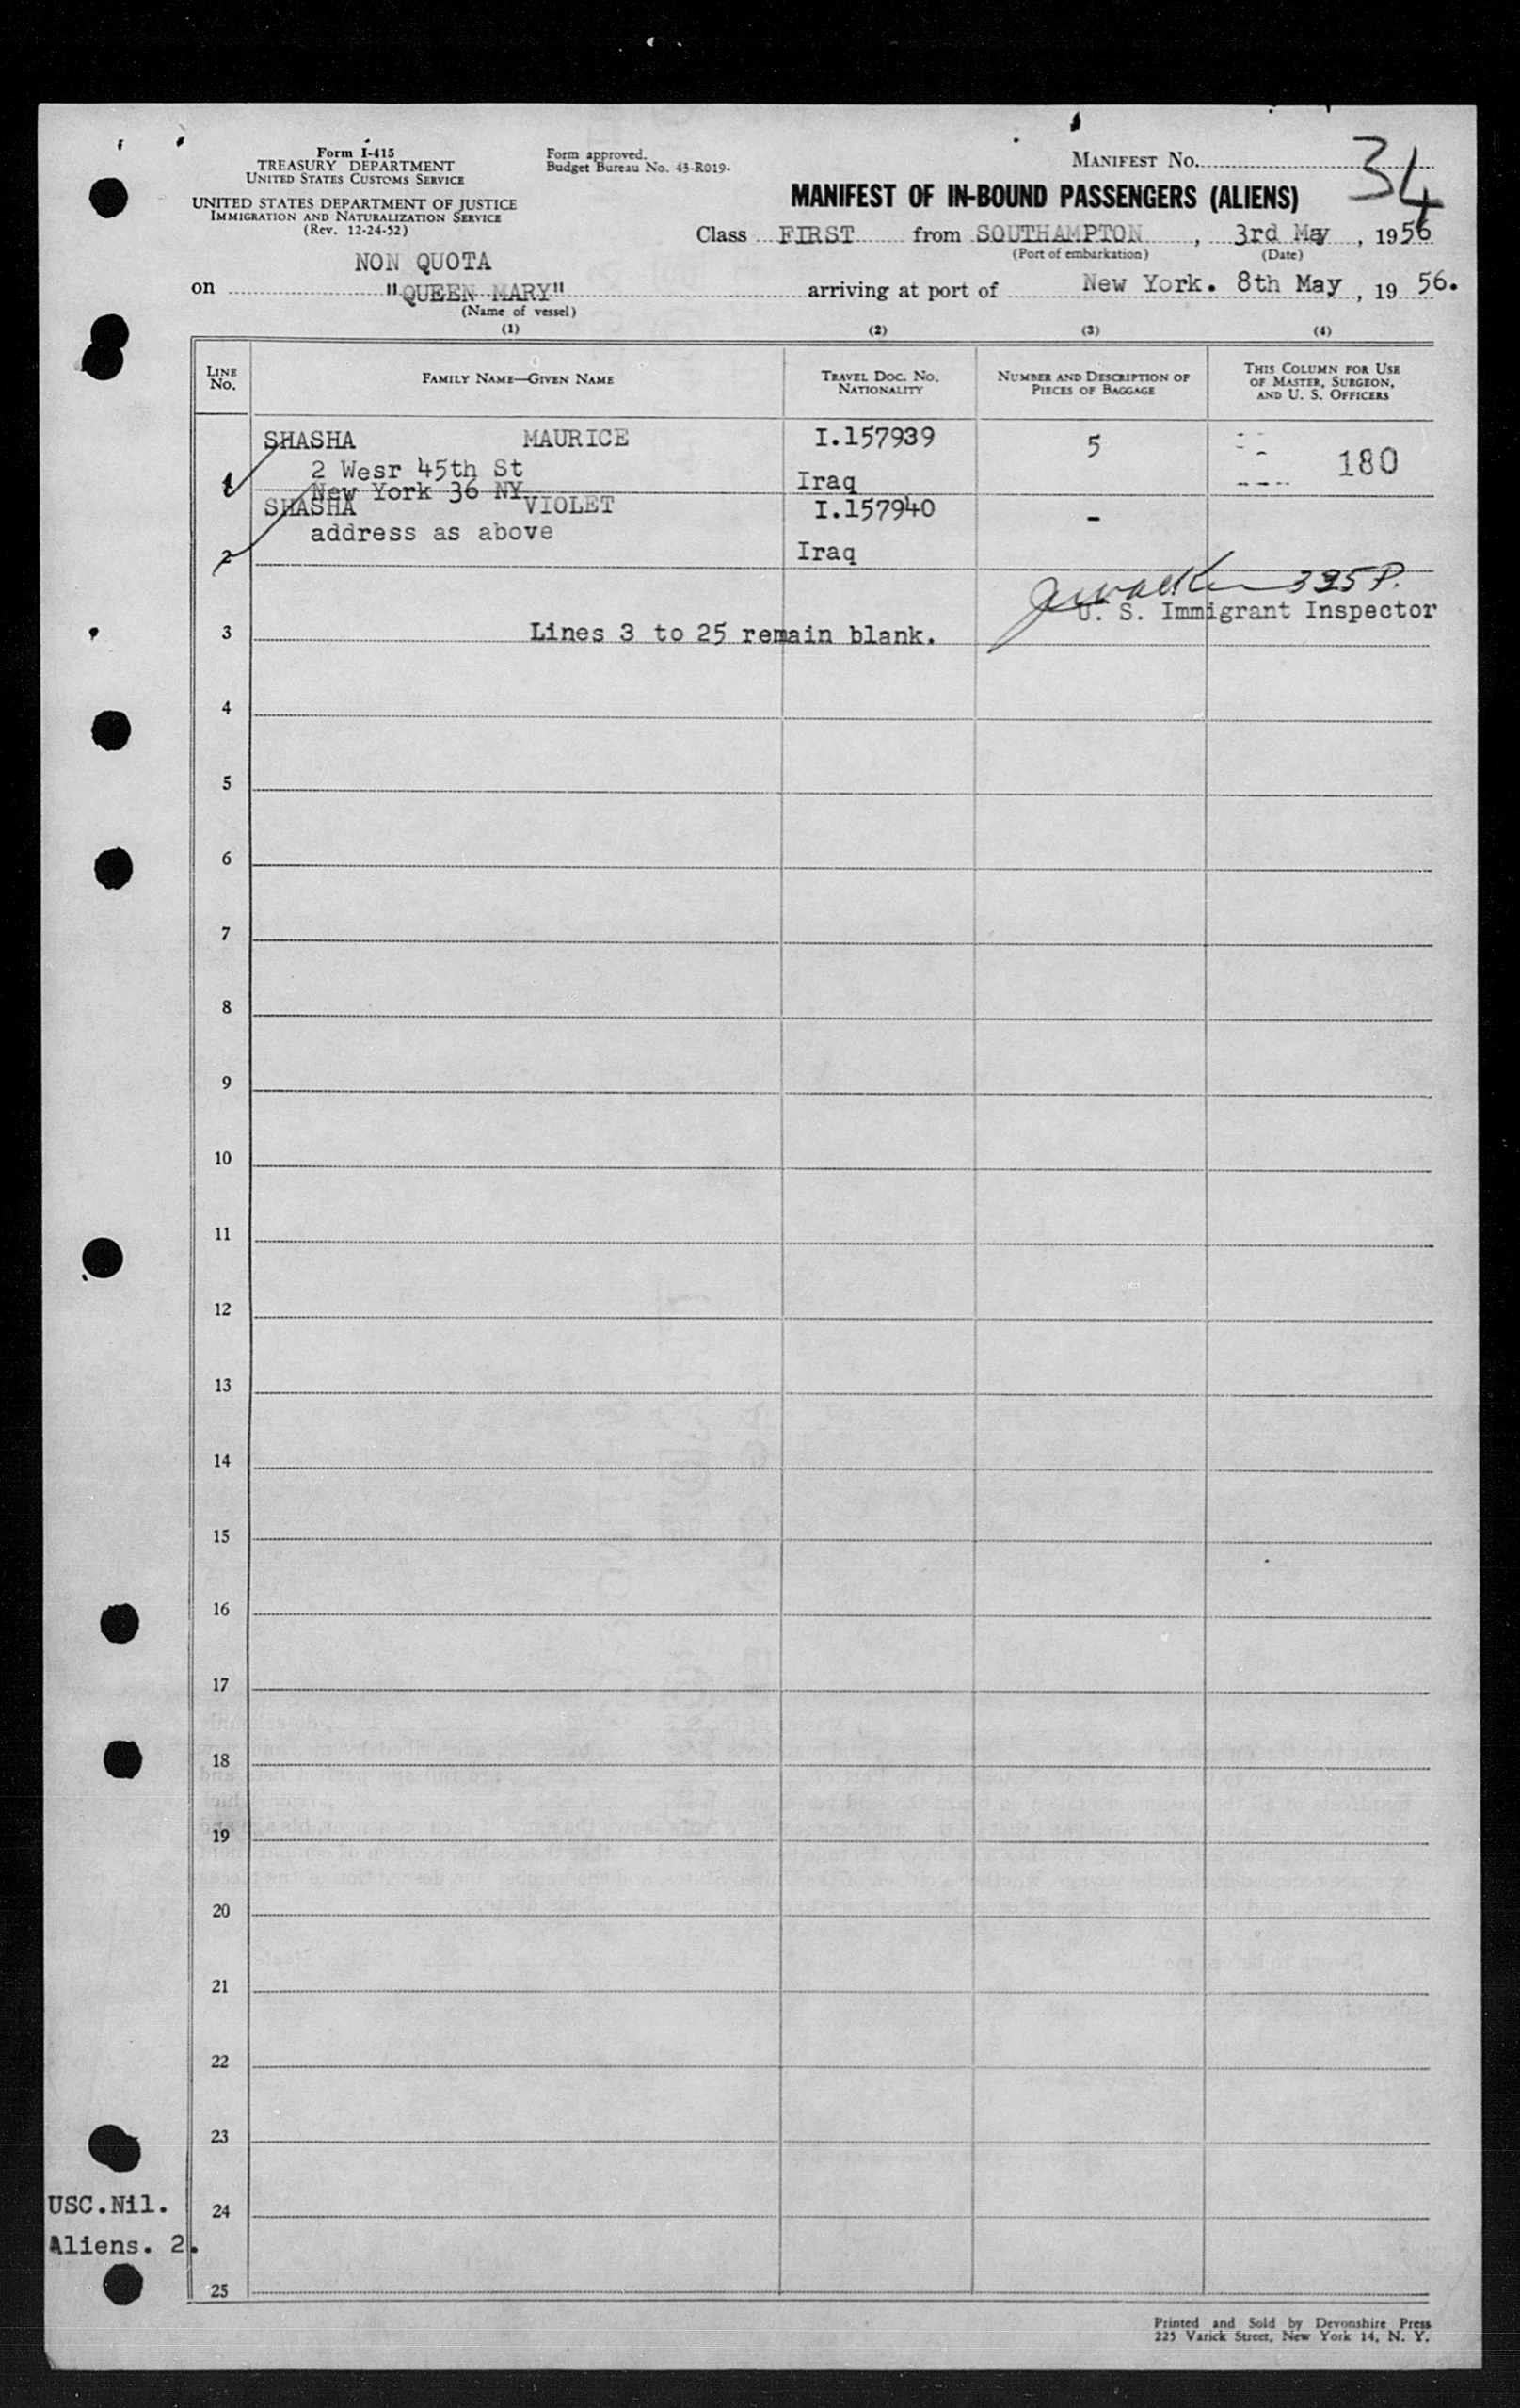 Form I-415
TREASURY DEPARTMENT
UNITED STATES CUSTOMS SERVICE
UNITED STATES DEPARTMENT OF JUSTICE
IMMIGRATION AND NATURALIZATION SERVICE
(Rev. 12-24-52)
Form approved.
Budget Bureau No. 43-R019-
MANIFEST NO. 34
MANIFEST OF IN-BOUND PASSENGERS (ALIENS)
Class FIRST from SOUTHAMPTON, 3rd May, 1956
(Port of embarkation) (Date)
NON QUOTA
on "QUEEN MARY" arriving at port of New York. 8th May, 19 56.
(Name of vessel)
(1) (2) (3) (4)
LINE NO.
FAMILY NAME—GIVEN NAME
TRAVEL DOC. NO. NATIONALITY
NUMBER AND DESCRIPTION OF PIECES OF BAGGAGE
THIS COLUMN FOR USE OF MASTER, SURGEON, AND U. S. OFFICERS
SHASHA MAURICE I.157939 5 180
2 Wesr 45th St
1 New York 36 NY Iraq
SHASHA VIOLET I.157940 -
address as above
2 Iraq
395 P.
U. S. Immigrant Inspector
3 Lines 3 to 25 remain blank.
4
5
6
7
8
9
10
11
12
13
14
15
16
17
18
19
20
21
22
23
USC.Nil. 24
Aliens. 2.
25
Printed and Sold by Devonshire Press
225 Varick Street, New York 14, N. Y.